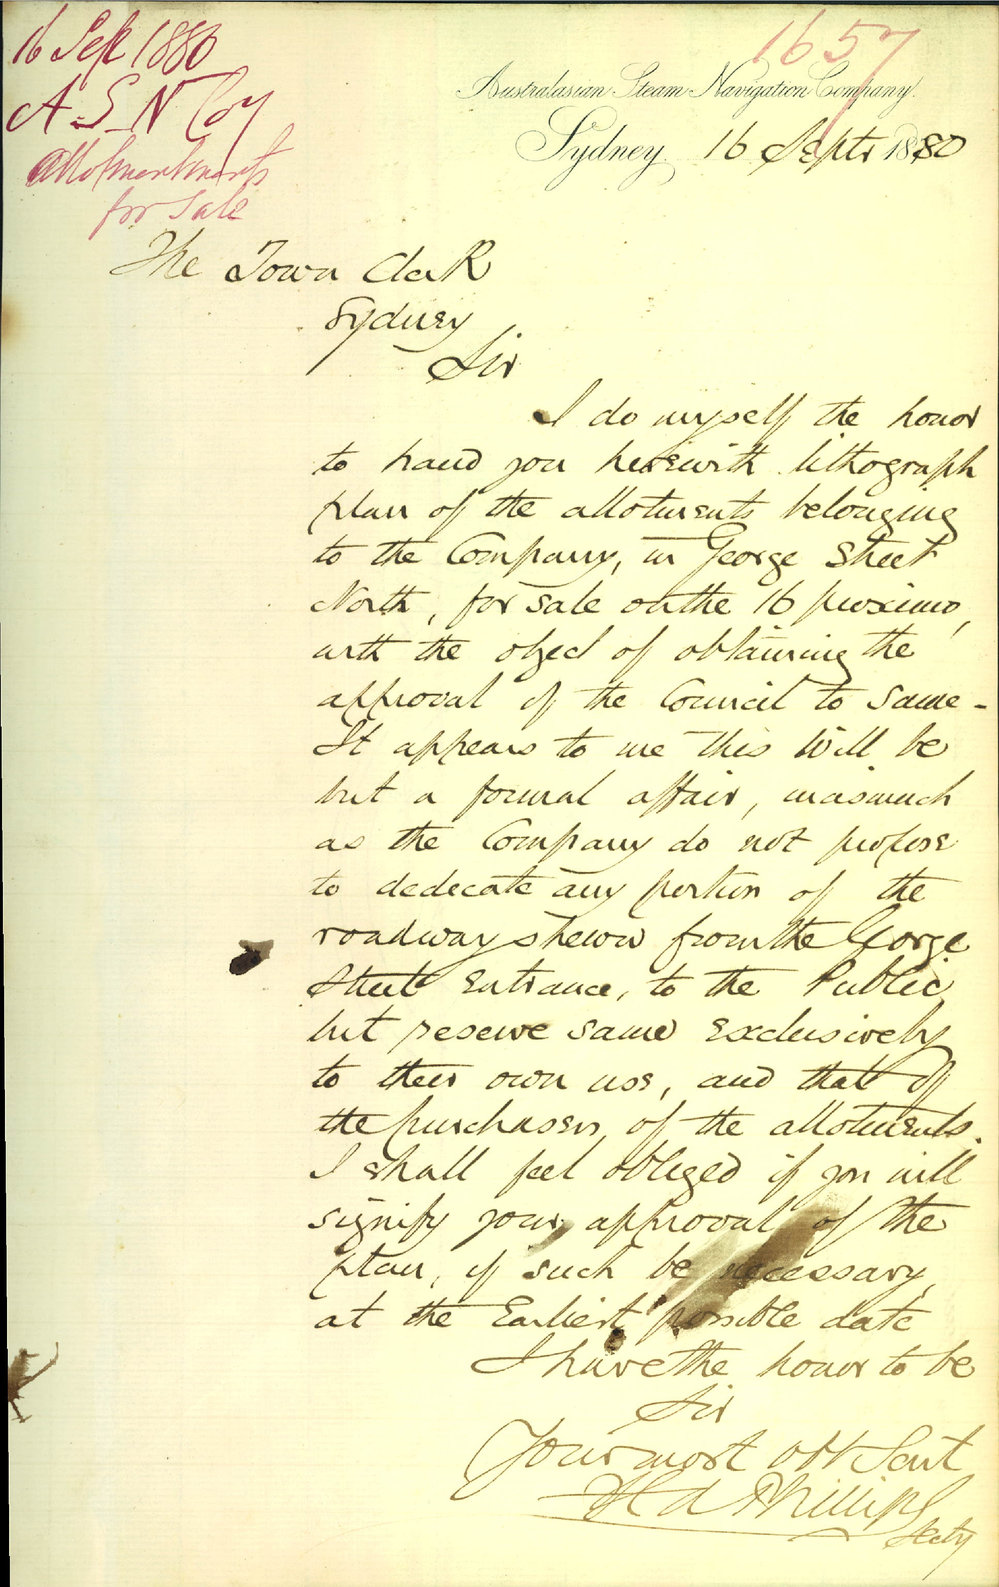 16 Sept 1880
A.S.N. Coy
Allotments
for Sale
1657
Australasian Steam Navigation Company.
Sydney 16 Septr 1880
The Town Clerk
Sydney
Sir
I do myself the honor
to hand you herewith lithograph
plan of the allotments belonging
to the Company, in George Street
North, for sale on the 16 proximo,
with the object of obtaining the
approval of the Council to same -
It appears to me this will be
but a formal affair, inasmuch
as the Company do not propose
to dedecate any portion of the
roadway shewn from the George
Street Entrance, to the Public
but reserve same exclusively
to their own use, and that of
the purchasers, of the allotments.
I shall feel obliged if you will
signify your approval of the
plan, if such be necessary,
at the Earliest possible date
I have the honor to be
Sir
Your most obt Servt
Phillips
Secty